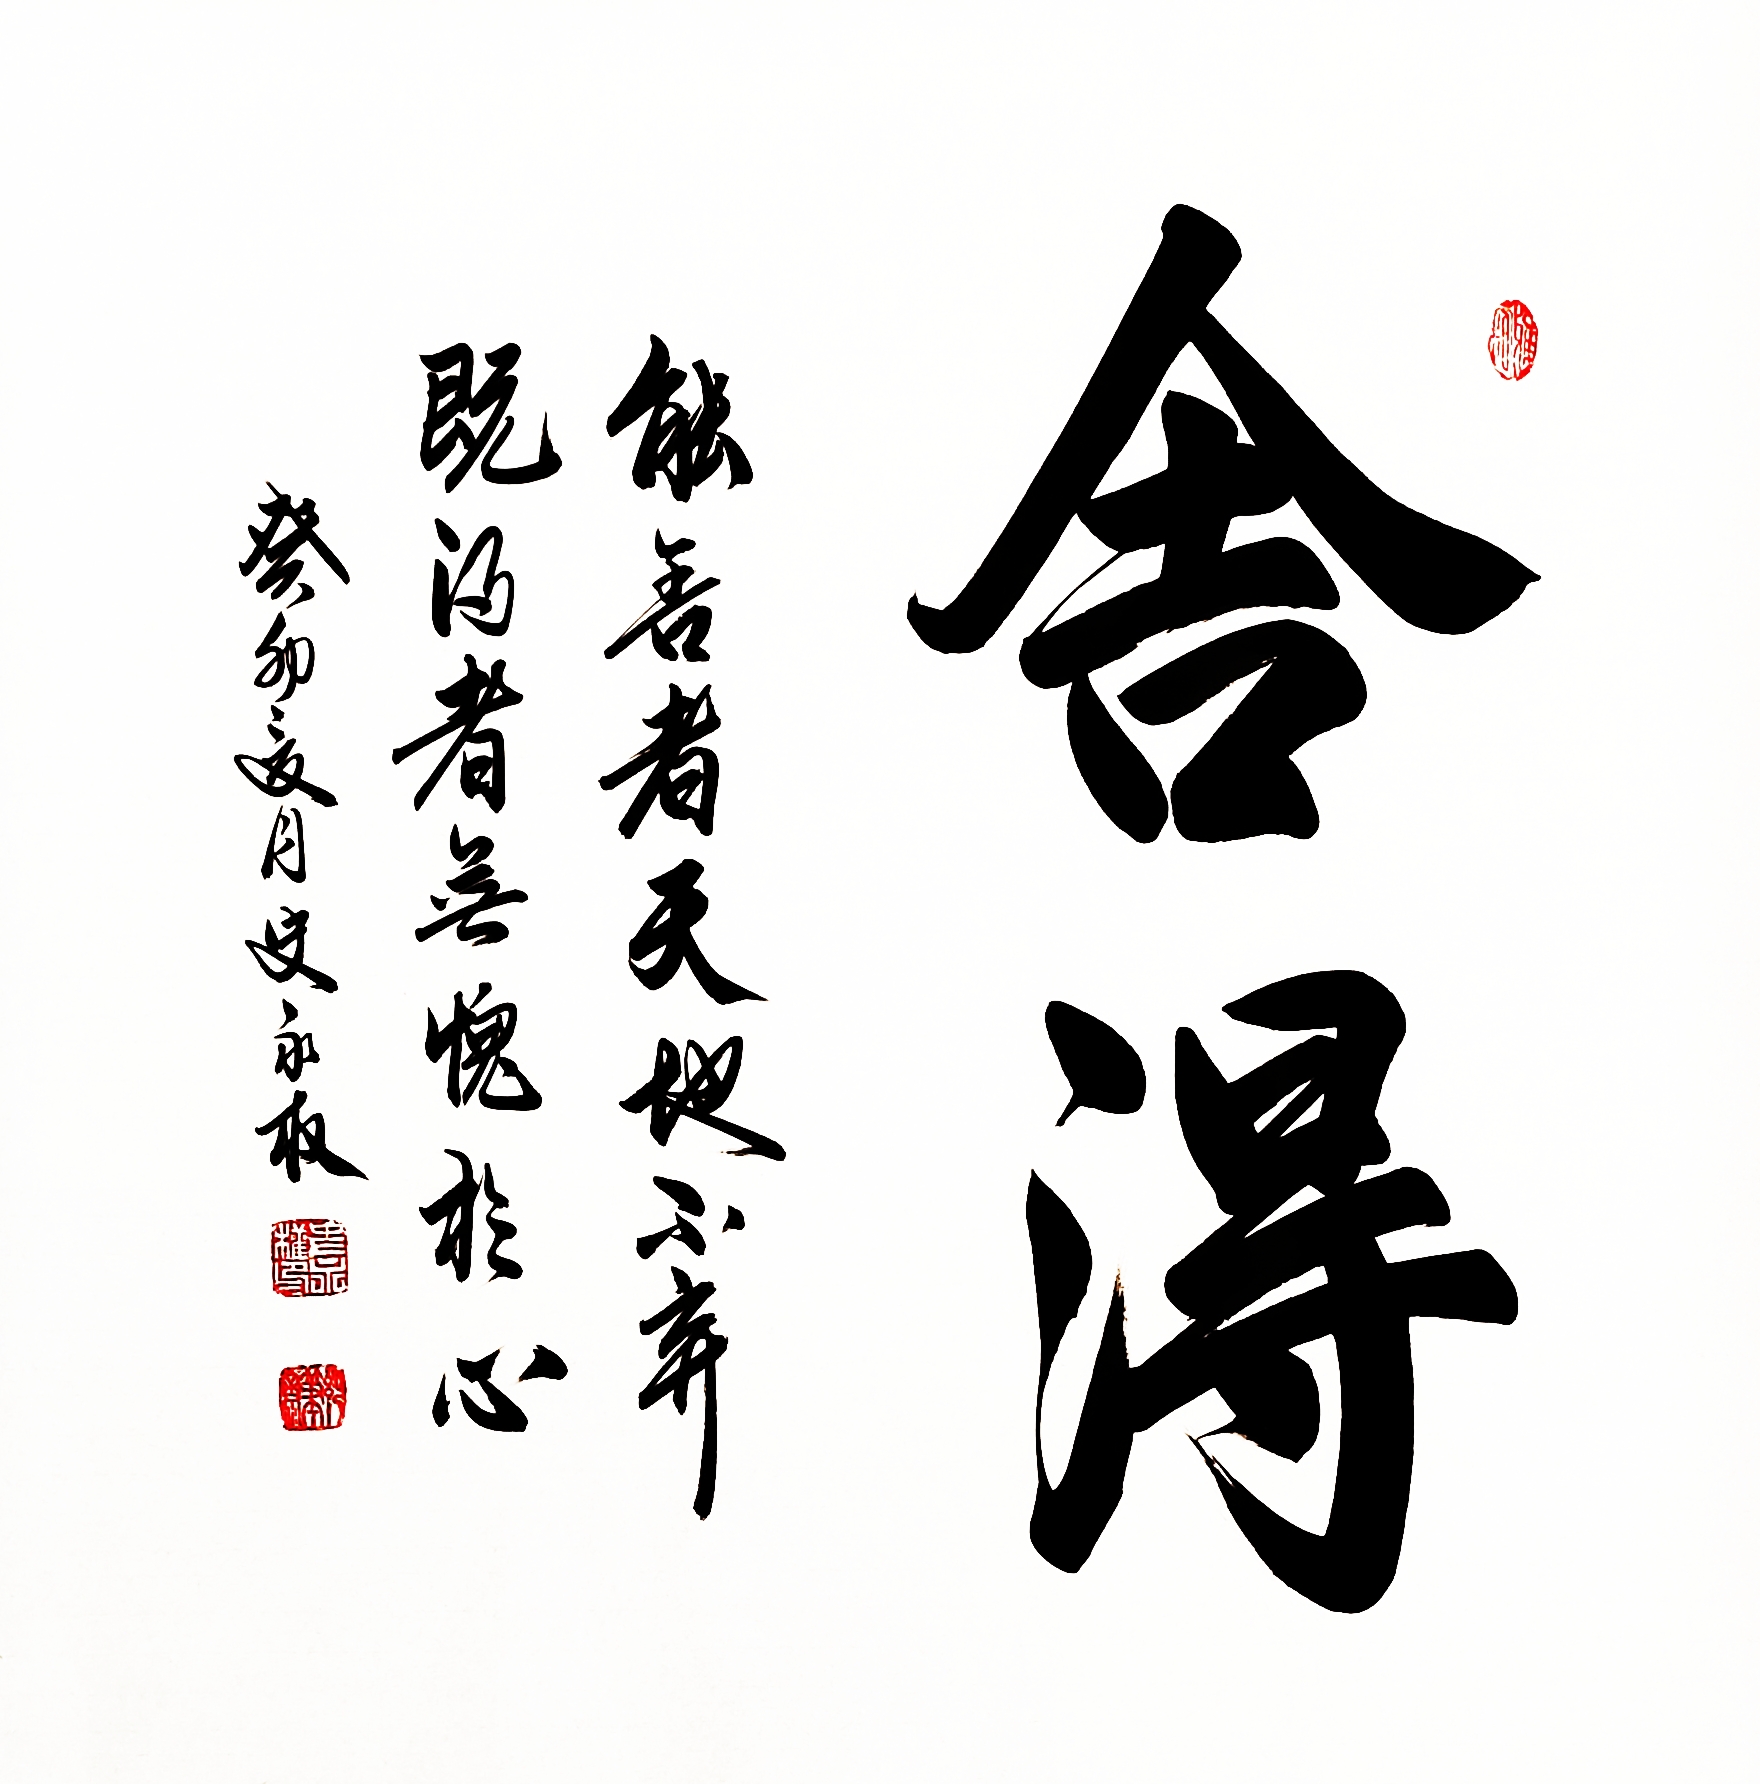 舍得
能善者天地不弃
既得者無愧於心
癸卯夏月袁永权